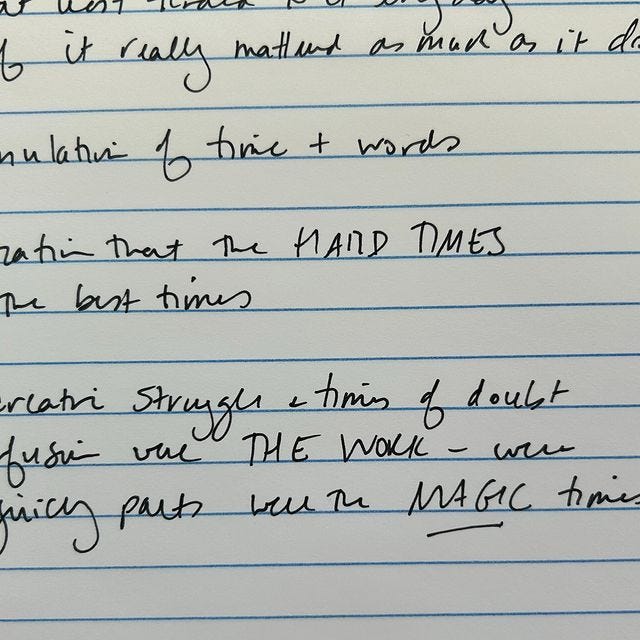 it really mattered as much as it
of time + words
that the HARD TIMES
the best times
creative struggle & times of doubt
were THE WORK – were
juicy parts were the MAGIC times